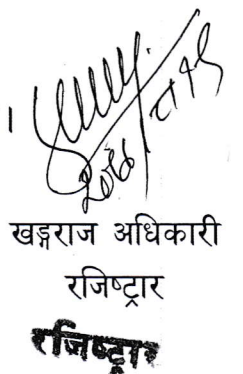 खड्गराज अधिकारी
रजिष्ट्रार
रजिष्ट्रार